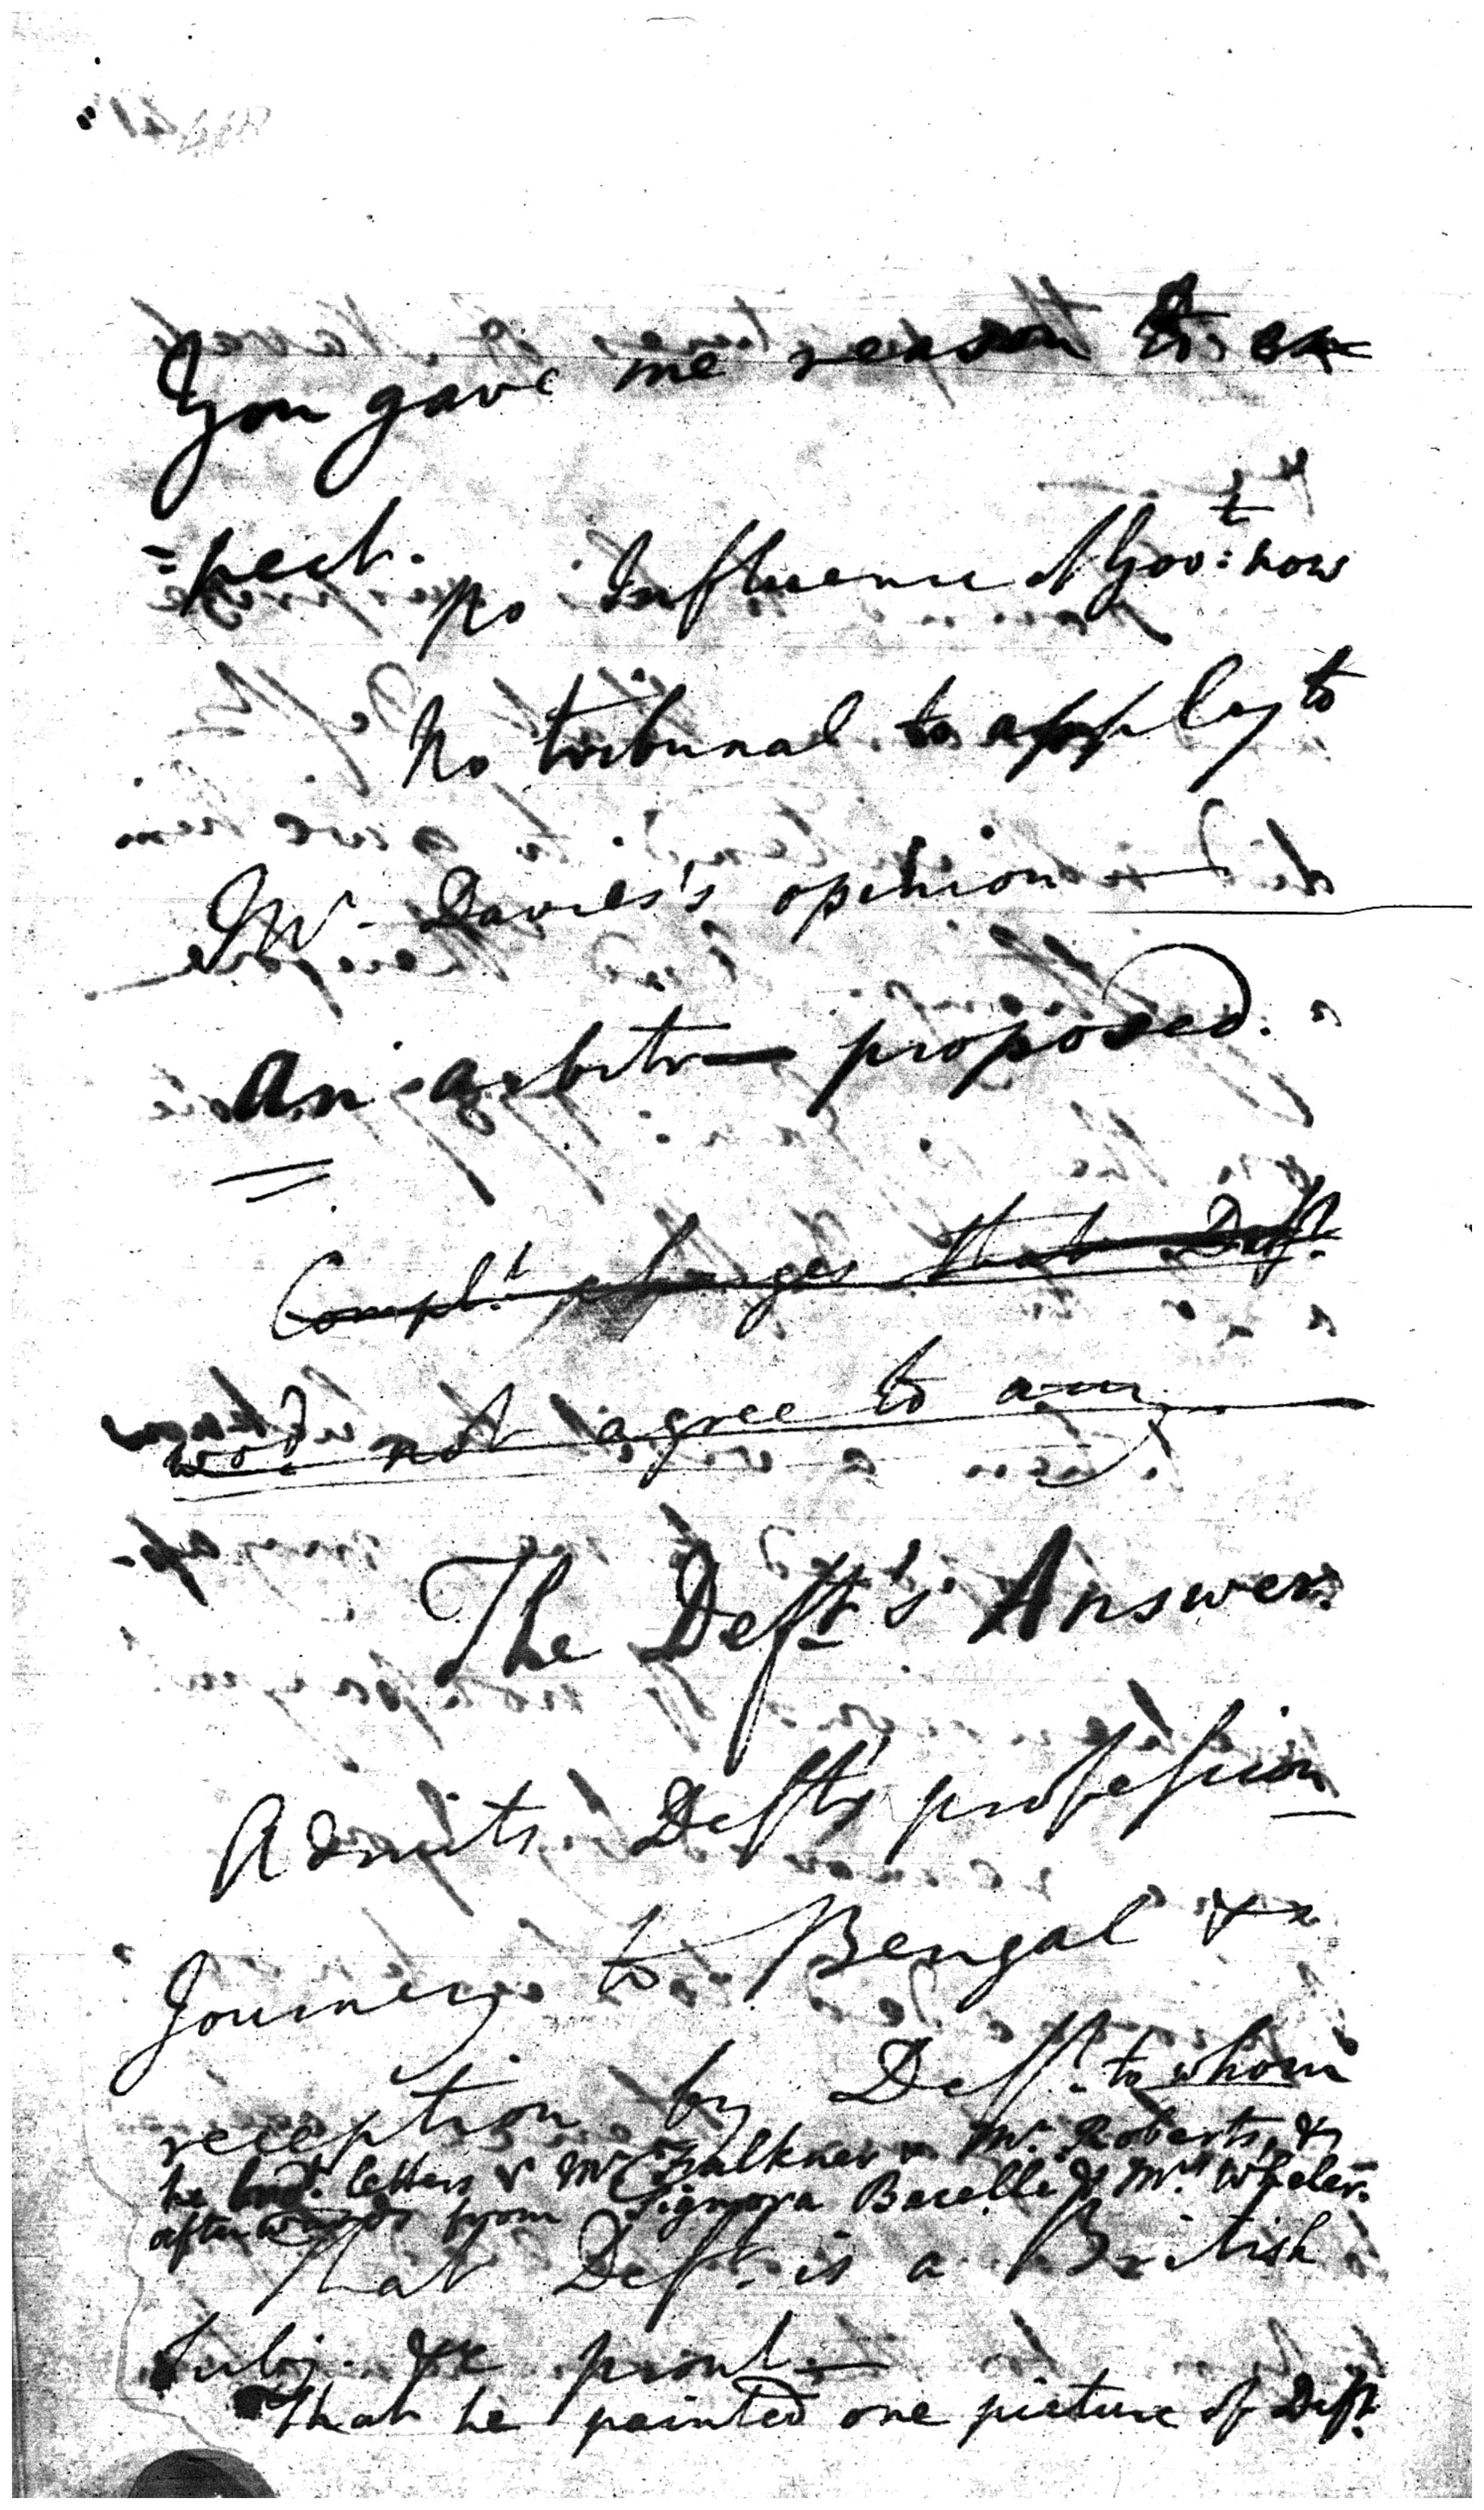 You gave me reason to ex=
=pect.
No Influence of Gov:t now
No tribunal to apply to
Mr. Davies's opinion —
An arbitrn proposed.
Complt. charges that Deft.
wod. not agree to any
The Deft's Answer.
Admits Deft's profession
Journey to Bengal &
reception by Deft. to whom
he letters & Mr Faulkner & Mr. Roberts, &
afterwards from Signora Barelli & Mrs Wheler.
That Deft. is a British
Subj. &c
That he painted one picture of Deft.